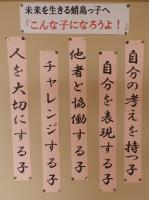 未来を生きる蛸島っ子へ
「こんな子になろうよ！」
自分の考えを持つ子
自分を表現する子
他者と協働する子
チャレンジする子
人を大切にする子